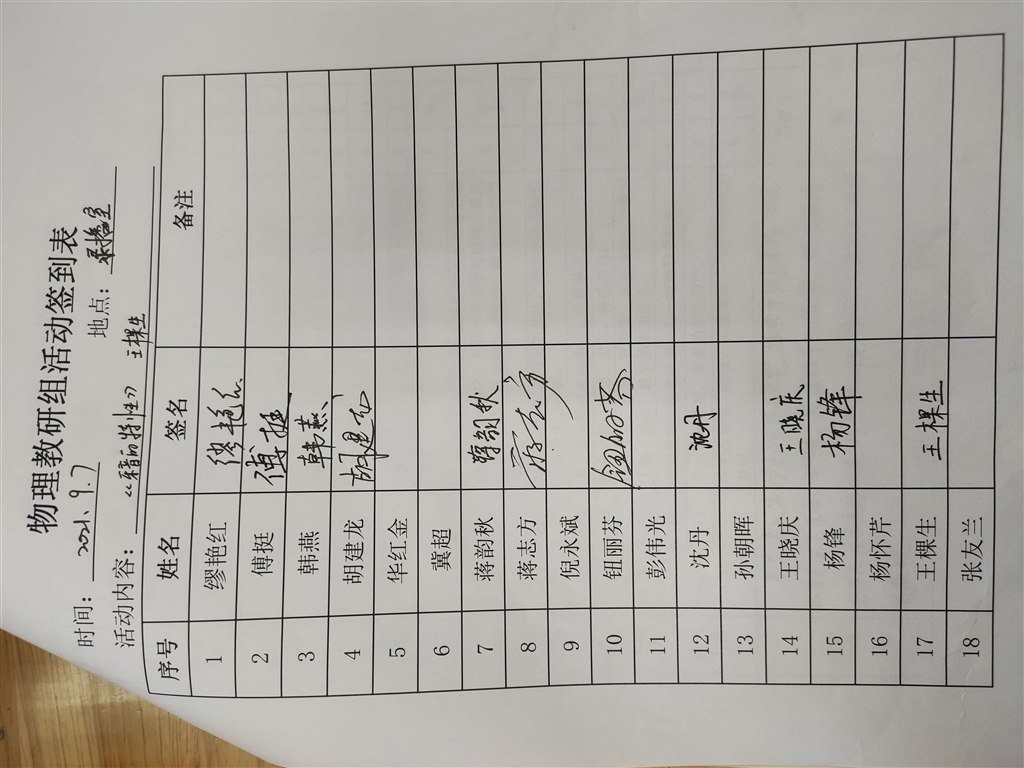 物理教研组活动签到表
时间： 2021. 9. 7 地点： 录播室
活动内容： 《声音的特性》 王棵生
序号 姓名 签名 备注
1 缪艳红 缪艳红
2 傅挺 傅挺
3 韩燕 韩燕
4 胡建龙 胡建龙
5 华红金
6 冀超
7 蒋韵秋 蒋韵秋
8 蒋志方 蒋志方
9 倪永斌
10 钮丽芬 钮丽芬
11 彭伟光
12 沈丹 沈丹
13 孙朝晖
14 王晓庆 王晓庆
15 杨锋 杨锋
16 杨怀芹
17 王棵生 王棵生
18 张友兰